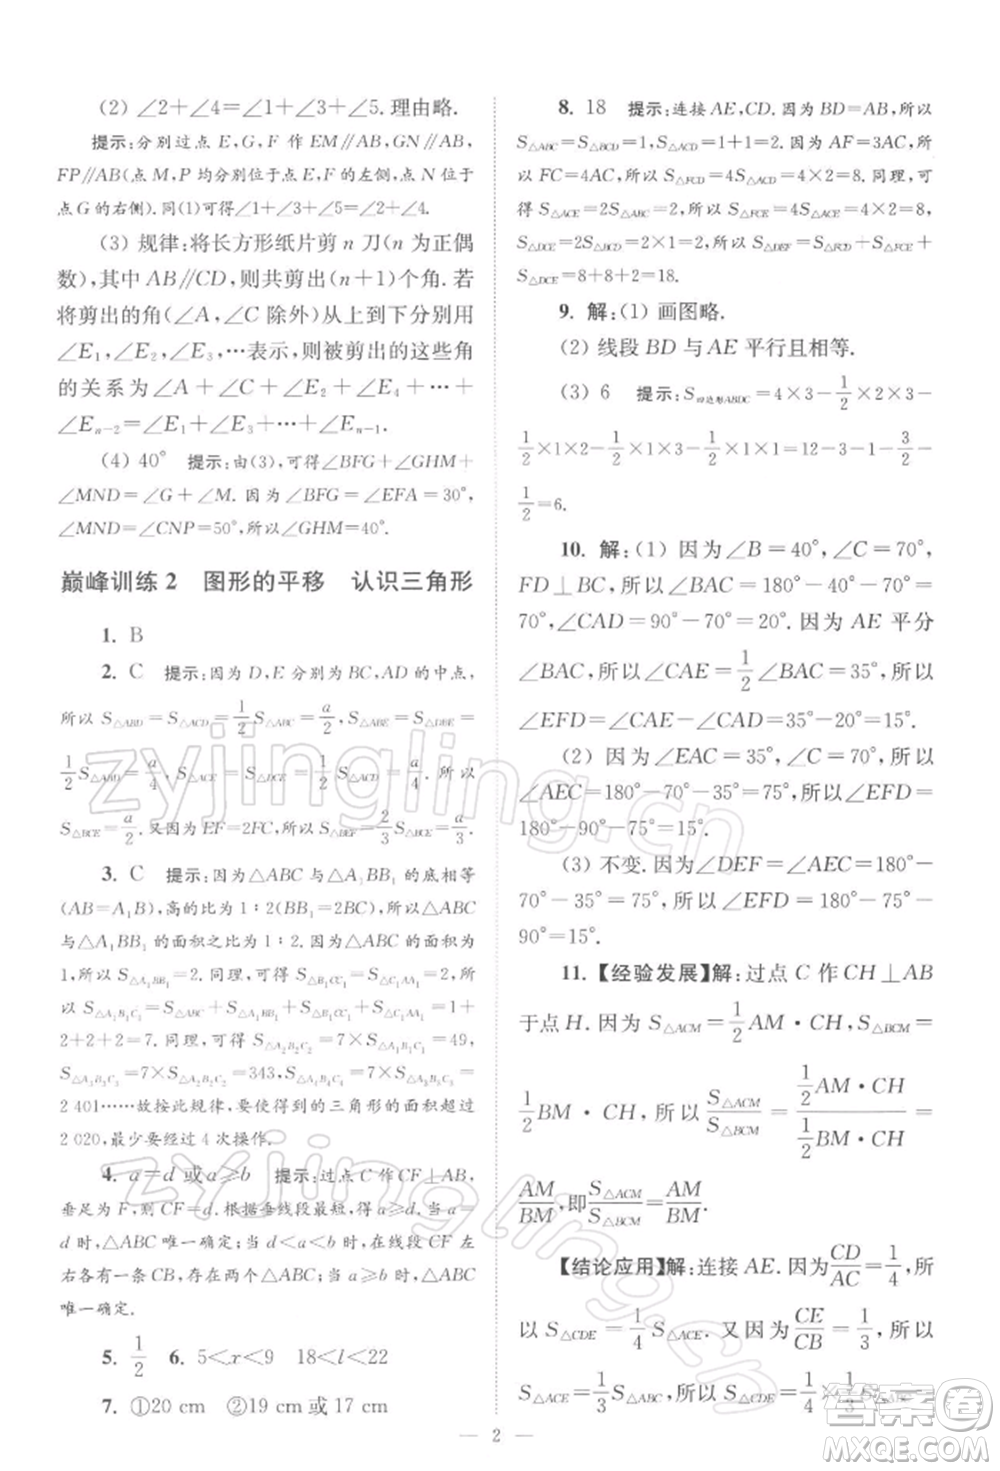 (2) ∠2+∠4=∠1+∠3+∠5.理由略.
提示:分别过点 E,G,F 作 EM∥AB,GN∥AB,
FP∥AB(点 M,P 均分别位于点 E,F 的左侧,点 N 位于
点 G 的右侧).同(1)可得∠1+∠3+∠5=∠2+∠4.
(3) 规律:将长方形纸片剪 n 刀(n 为正偶
数),其中 AB∥CD,则共剪出(n+1)个角.若
将剪出的角(∠A,∠C 除外)从上到下分别用
∠E₁,∠E₂,∠E₃,…表示,则被剪出的这些角
的关系为∠A+∠C+∠E₂+∠E₄+…+
∠Eₙ₋₂=∠E₁+∠E₃+…+∠Eₙ₋₁.
(4) 40° 提示:由(3),可得∠BFG+∠GHM+
∠MND=∠G+∠M.因为∠BFG=∠EFA=30°,
∠MND=∠CNP=50°,所以∠GHM=40°.
巅峰训练 2 图形的平移 认识三角形
1. B
2. C 提示:因为 D,E 分别为 BC,AD 的中点,
所以 S△ABD=S△ACD=1/2 S△ABC=a/2,S△BDE=
1/2 S△ABD=a/4.同理,S△ACE=S△DCE=a/4.所以
S△BCE=a/2.又因为 EF=2FC,所以 S△BEF=2/3 S△BCE=a/3.
3. C 提示:因为△ABC 与△A₁BB₁ 的底相等
(AB=A₁B),高的比为 1∶2(BB₁=2BC),所以△ABC
与△A₁BB₁ 的面积之比为 1∶2.因为△ABC 的面积为
1,所以 S△A₁BB₁=2.同理,可得 S△B₁CC₁=2,S△AA₁C₁=2.
所以 S△A₁B₁C₁=S△B₁CC₁+S△AA₁C₁+S△A₁BB₁+S△ABC=1+
2+2+2=7.同理,可得 S△A₂B₂C₂=7×S△A₁B₁C₁=49,
S△A₃B₃C₃=7×S△A₂B₂C₂=343,S△A₄B₄C₄=7×S△A₃B₃C₃=
2 401……故按此规律,要使得到的三角形的面积超过
2 020,最少要经过 4 次操作.
4. a=d 或 a≥b 提示:过点 C 作 CF⊥AB,
垂足为 F,则 CF=d.根据垂线段最短,可得当 a=
d 时,△ABC 唯一确定;当 d<a<b 时,在线段 CF 左
右各有一条 CB,存在两个△ABC;当 a≥b 时,△ABC
唯一确定.
5. 1/2 6. 5<x<9 18<l<22
7. ①20 cm ②19 cm 或 17 cm
8. 18 提示:连接 AE,CD.因为 BD=AB,所以
S△ABC=S△BCD=1,S△ACD=1+1=2.因为 AF=3AC,所
以 FC=4AC,所以 S△FCD=4S△ACD=4×2=8.同理,可
得 S△ACE=2S△ABC=2,所以 S△FCE=4S△ACE=4×2=8,
S△DCE=2S△BCD=2×1=2,所以 S△DEF=S△FCD+S△FCE+
S△DCE=8+8+2=18.
9. 解:(1) 画图略.
(2) 线段 BD 与 AE 平行且相等.
(3) 6 提示:S四边形ABDC=4×3-1/2×2×3-
1/2×1×2-1/2×1×3-1/2×1×1=12-3-1-3/2-
1/2=6.
10. 解:(1) 因为∠B=40°,∠C=70°,
FD⊥BC,所以∠BAC=180°-40°-70°=
70°,∠CAD=90°-70°=20°.因为 AE 平分
∠BAC,所以∠CAE=1/2∠BAC=35°,所以
∠EFD=∠CAE-∠CAD=35°-20°=15°.
(2) 因为∠EAC=35°,∠C=70°,所以
∠AEC=180°-70°-35°=75°,所以∠EFD=
180°-90°-75°=15°.
(3) 不变.因为∠DEF=∠AEC=180°-
70°-35°=75°,所以∠EFD=180°-75°-
90°=15°.
11.【经验发展】解:过点 C 作 CH⊥AB
于点 H.因为 S△ACM=1/2 AM·CH,S△BCM=
1/2 BM·CH,所以 S△ACM/S△BCM=(1/2 AM·CH)/(1/2 BM·CH)=
AM/BM,即 S△ACM/S△BCM=AM/BM.
【结论应用】解:连接 AE.因为 CD/AC=1/4,所
以 S△CDE=1/4 S△ACE.又因为 CE/CB=1/3,所以
S△ACE=1/3 S△ABC,所以 S△CDE=1/4×1/3 S△ABC=
2
zyjingling.cn
zyjingling.cn
答案圈
MXQE.COM